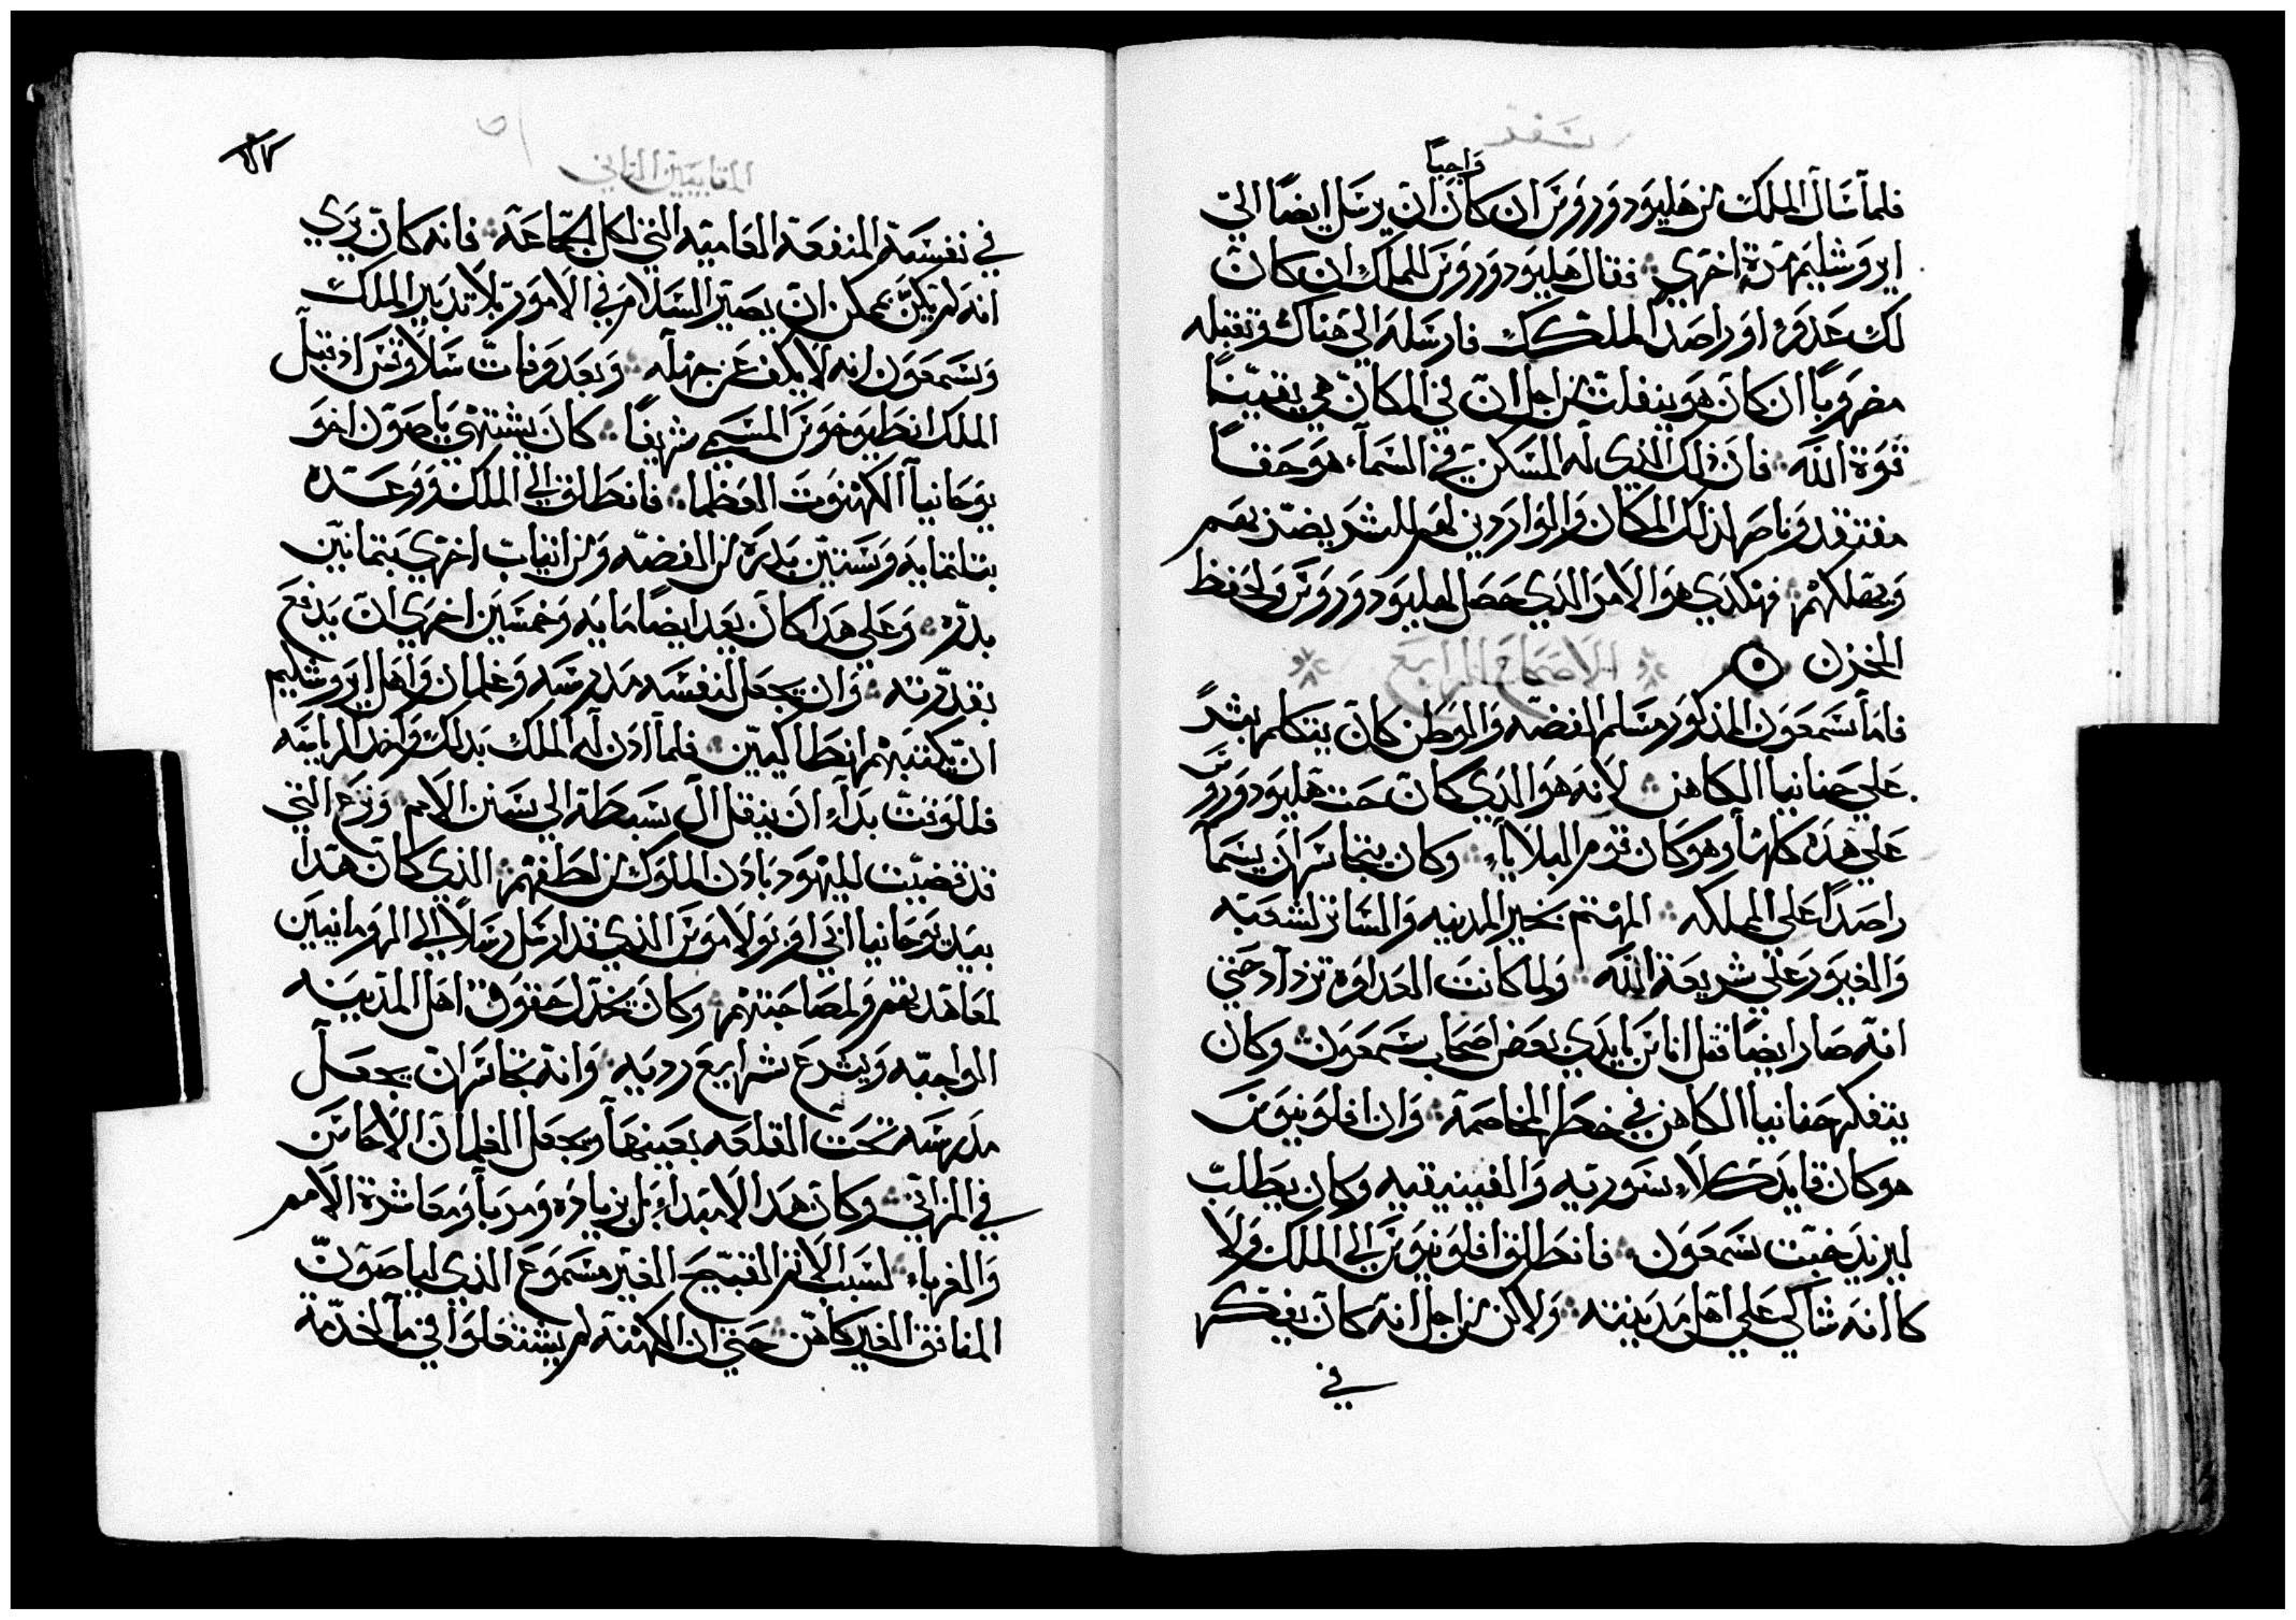 سفر
واجبًا
فلما سال الملك من هليودوروس ان كان ان يرسل ايضًا الى
ايروشليم مرة اخرى فقال هليودوروس للملك ان كان
لك عدو او راصد لملكك فارسله الى هناك وتقبله
مضروبًا ان كان هو ينفلت من اجل ان في المكان هي يقينًا
قوة الله فان ذلك الذي له المسكن في السماء هو حقًا
مفتقد وناصر لذلك المكان والواردين لعمل الشر يضربهم
ويهلكهم فهكذي هو الامر الذي حصل لهليودوروس ولحفظ
الخزن الاصحاح الرابع
فاما سمعون المذكور مسلم الفضه والوطن كان يتكلم بشرً
علي حنانيا الكاهن لانه هو الذي كان حث هليودوروس
علي هذه كلها وهو كان قوم البلايا وكان يتجاسر ان يسما
راصدًا علي المملكه المهتم بخير المدينه والساتر لشعبه
والغيور علي شريعة الله ولما كانت العداوه تزداد حتي
انه صار ايضًا قتل اناس بايدي بعض اصحاب سمعون وكان
يتفكر حنانيا الكاهن في خطر المخاصمة وان افلونيوس
هو كان قايد كلاسورتيه والفينيقيه وكان يطلب
ليزيد خبث سمعون فانطلق افلونيوس الي الملك ولا
كانه شاكي علي اهل مدينته ولاكن من اجل انه كان يفتكر
في
٥١
المقابيين الثاني
في نفسه المنفعة العاميه التي لكل الجماعة فانه كان يري
انه لم يكن يمكن ان يصير السلام في الامور بلا تدبير الملك
وسمعون انه لا يكف عن جهله وبعد وفات سلاوقس اذ قبل
الملك انطيوخوس المسمي شريفًا كان يشتهي ياصون اخو
يوحانيا الكهنوت العظما فانطلق الي الملك ووعده
بتلتمايه وستين بدره من الفضه ومن اتيات اخري بتمانين
بدره وعلي هدا كان يعد ايضًا مايه وخمسين اخري ان يدفع
بقدرته وان يجعل لنفسه مدرسه وغلمان واهل ايروشليم
ان يكتبهم انطاكيين فلما ادن له الملك بدلك واخد الرياسه
فللوقت بداء ان ينقل ال سبطه الي سنن الامم ونزع التي
قد قضيت لليهود بادن الملوك من لطفهم الذي كان هدا
بيد يوحانيا ابي اوبولاموس الذي قد ارسل رسلًا الي الرومانيين
لمعاهدتهم ولمصاحبتهم وكان يخذل حقوق اهل المدينه
الواجبه ويشرع شرايع رديه وانه تجاسر ان يجعل
مدرسه تحت القلعه بعينها ويجعل الغلمان الاحاسن
في المزاني وكان هدا لا مبداء بل زياده ومربا ومعاشرة الامم
والغرباء لسبب الاتم القبيح الغير مسموع الذي لياصون
المنافق الغير كاهن حتي ان الكهنة لم يشتغلوا في ما لخدمة